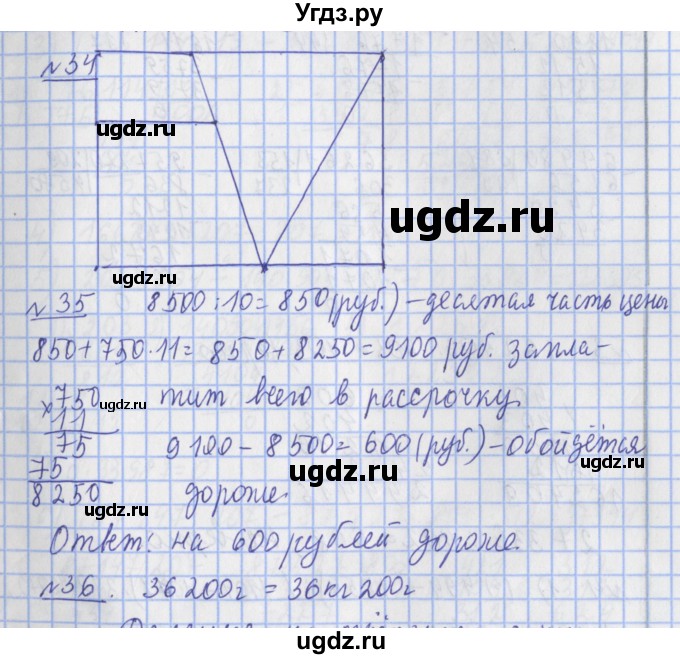 Угдз.ру
№34
ugdz.ru
ugdz.ru
ugdz.ru
№35 8500:10=850(руб.)-десятая часть цены
850+750·11=850+8250=9100 руб. запла-
ugdz.ru
×750 тит всего в рассрочку.
11
75 9100-8500=600(руб.)-обойдётся
75
ugdz.ru
8250 дороже.
ugdz.ru
Ответ: на 600 рублей дороже.
ugdz.ru
№36. 36200г = 36кг 200г
ugdz.ru